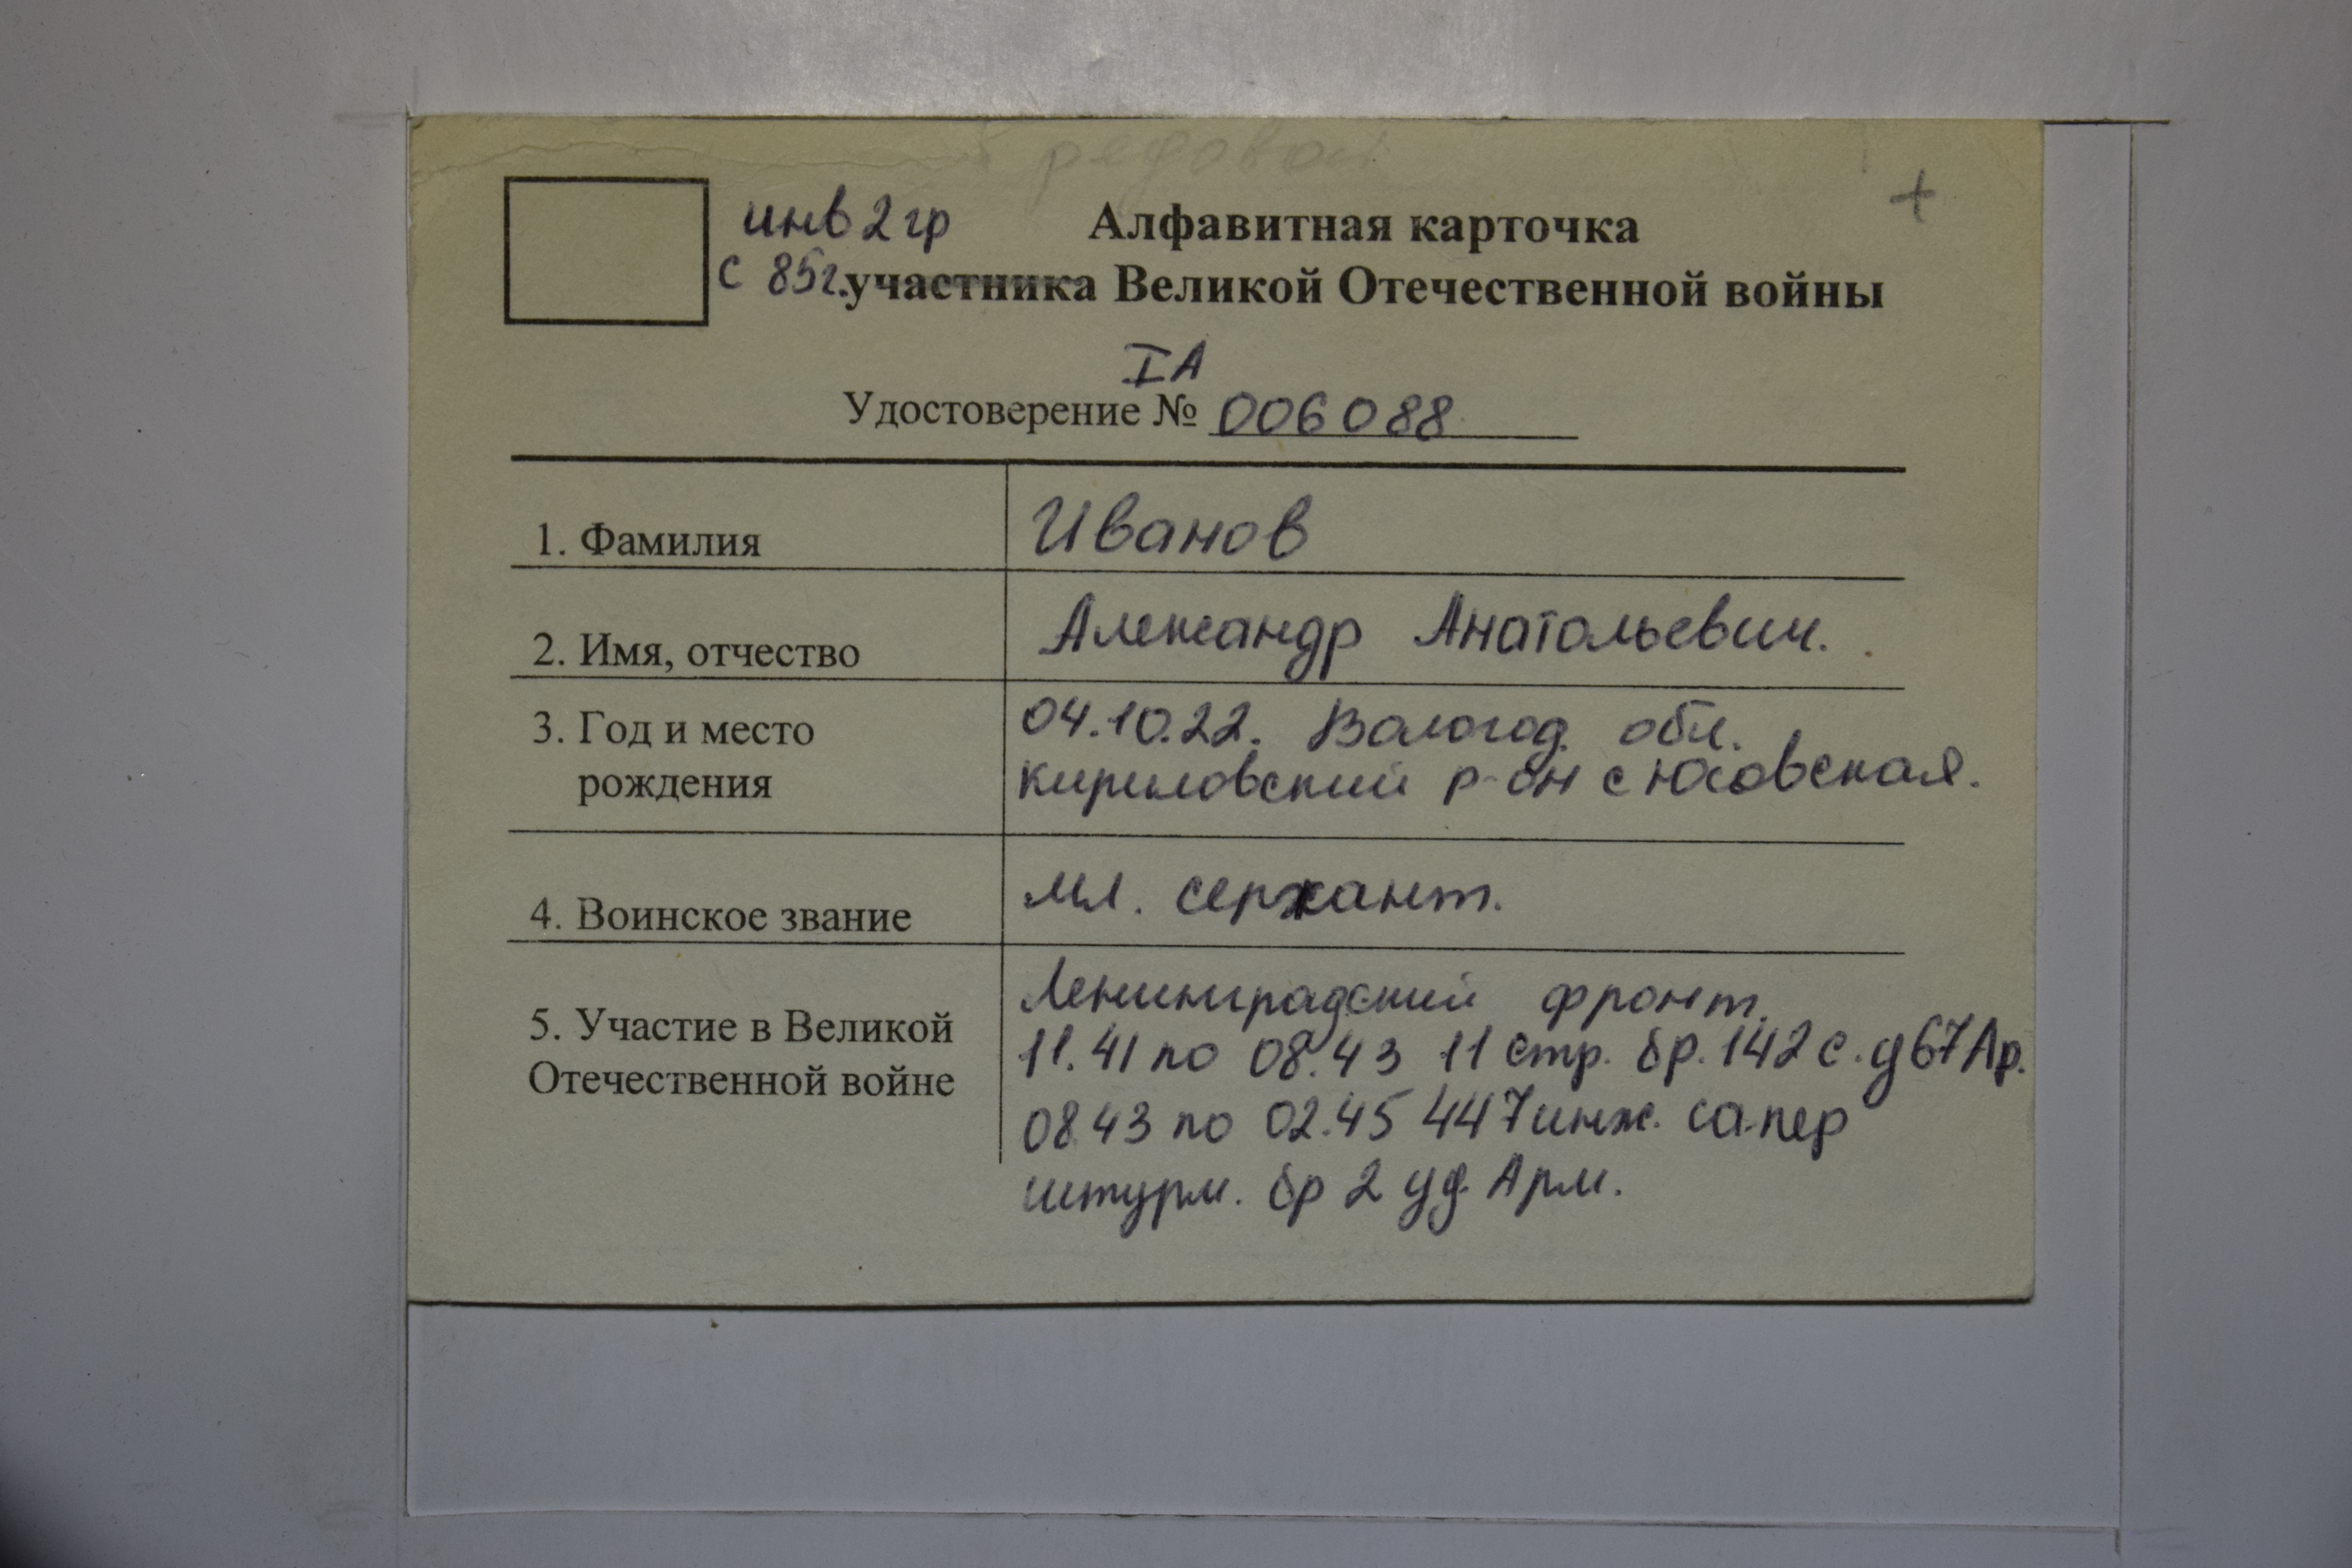 рядовой
+
инв 2 гр
Алфавитная карточка
с 85г. участника Великой Отечественной войны
IА
Удостоверение № 006088
1. Фамилия
Иванов
2. Имя, отчество
Александр Анатольевич.
3. Год и место
рождения
04.10.22. Вологод. обл.
кириловский р-он с
4. Воинское звание
мл. сержант.
5. Участие в Великой
Отечественной войне
Ленинградский фронт.
11.41 по 08.43 11 стр. бр. 142 с.д 67 Ар.
08.43 по 02.45 447 инж. сапер
штурм. бр 2 уд. Арм.